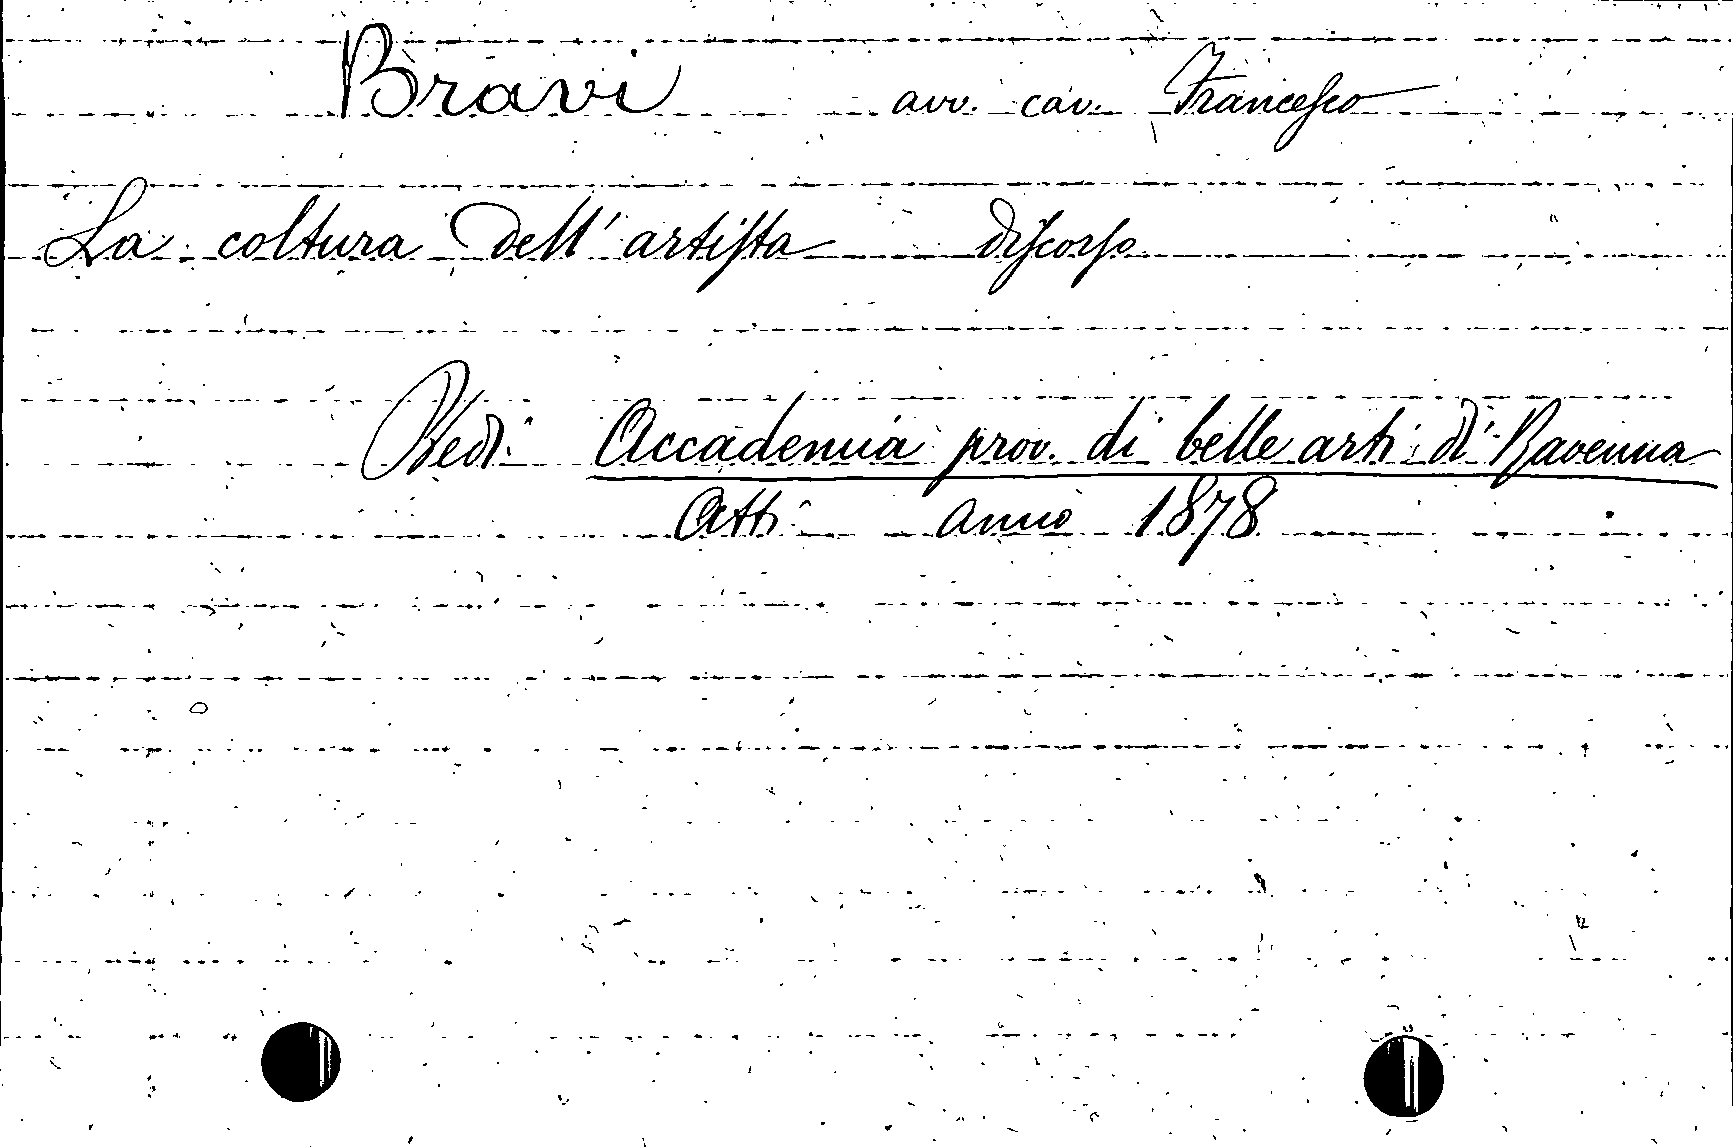 Bravi avv. cav. Francesco
La coltura dell'artista discorso
Vedi: Accademia prov. di belle arti di Ravenna
Atti anno 1878